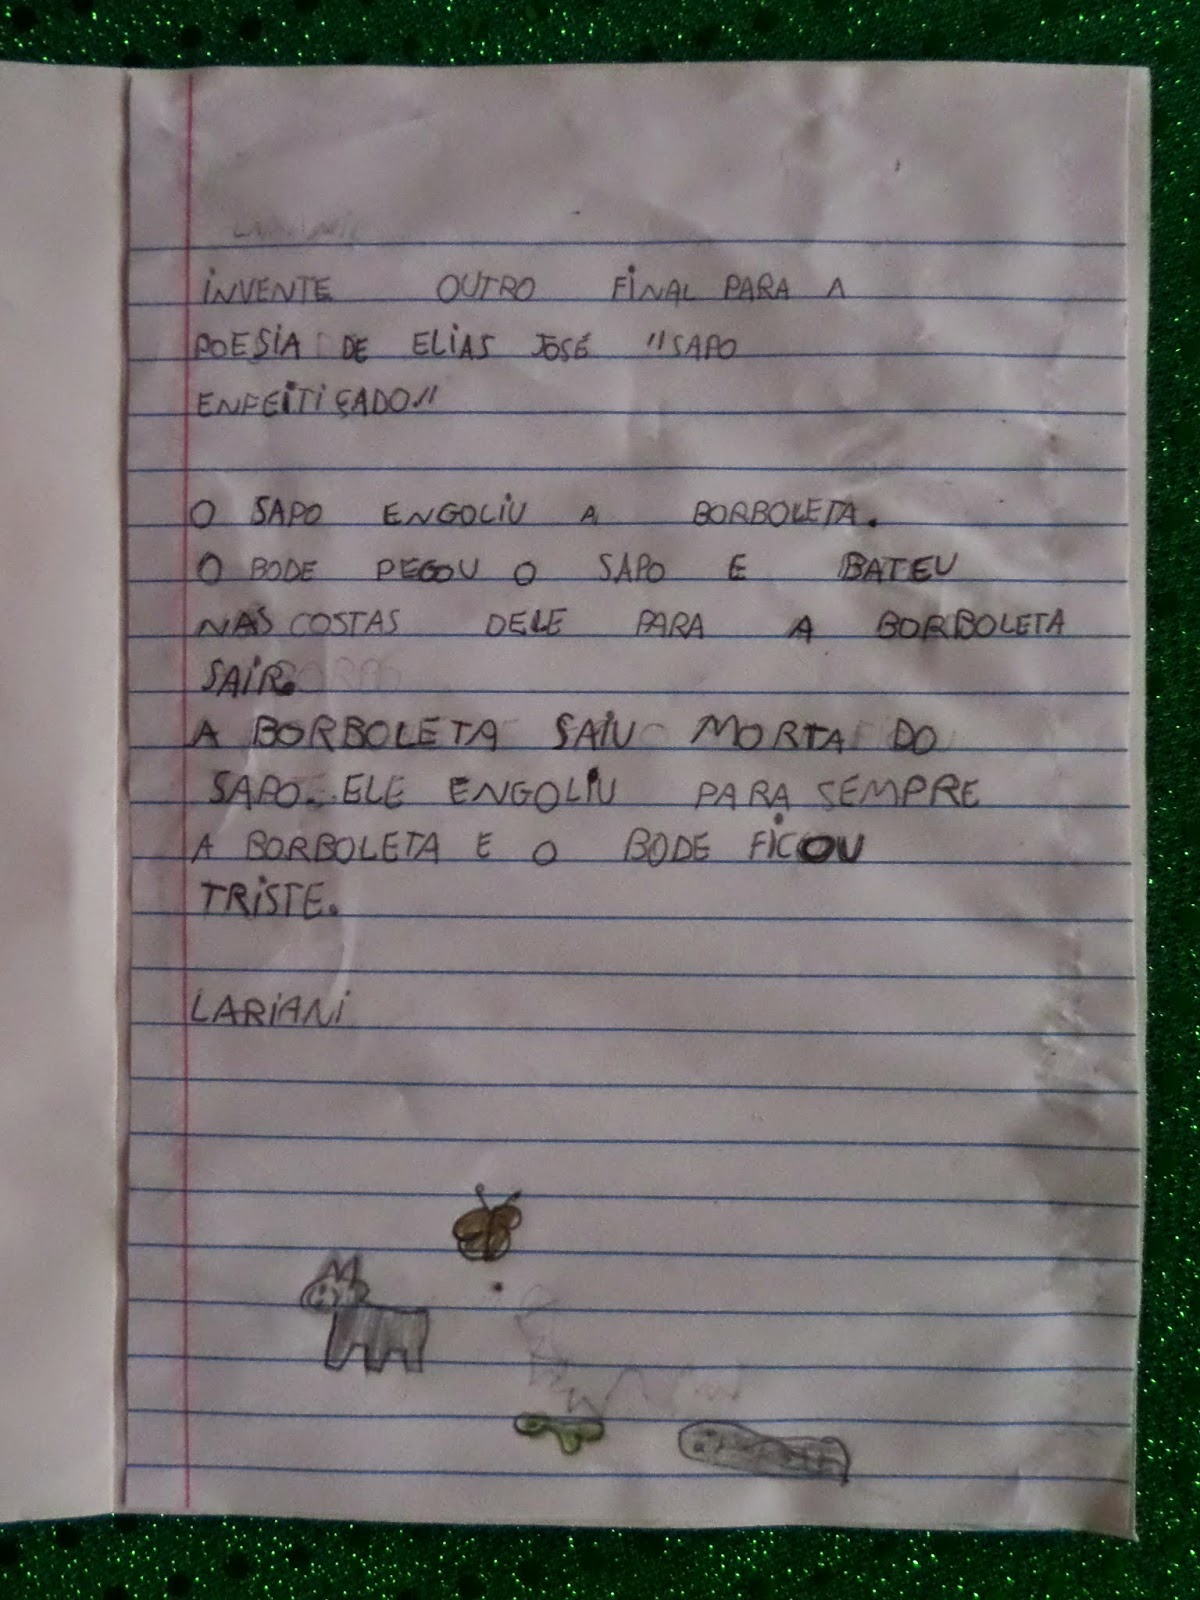 INVENTE OUTRO FINAL PARA A
POESIA DE ELIAS JOSÉ "SAPO
ENFEITIÇADO"
O SAPO ENGOLIU A BORBOLETA.
O BODE PEGOU O SAPO E BATEU
NAS COSTAS DELE PARA A BORBOLETA
SAIR.
A BORBOLETA SAIU MORTA DO
SAPO. ELE ENGOLIU PARA SEMPRE
A BORBOLETA E O BODE FICOU
TRISTE.
LARIANI